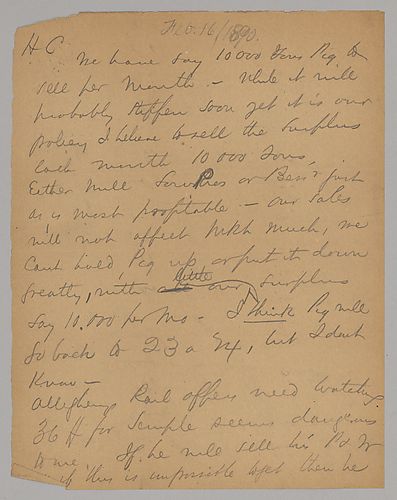 Feb. 16/1890.
H C
We have say 10 000 tons Pig to
sell per month – While it will
probably stiffen soon yet it is our
policy I believe to sell the surplus
each month 10 000 tons,
Either Mill or Bess'r just
as is most profitable – our sales
will not affect Mkt much, we
cant hold Pig up or put it down
greatly, with little our surplus
say 10.000 per mo – I think Pig will
go back to 23 a 24, but I dont
Know –
Allegheny Rail offers need watching
36 ff for Semple seems dangerous
to me If he will sell his
if this is impossible to get then he